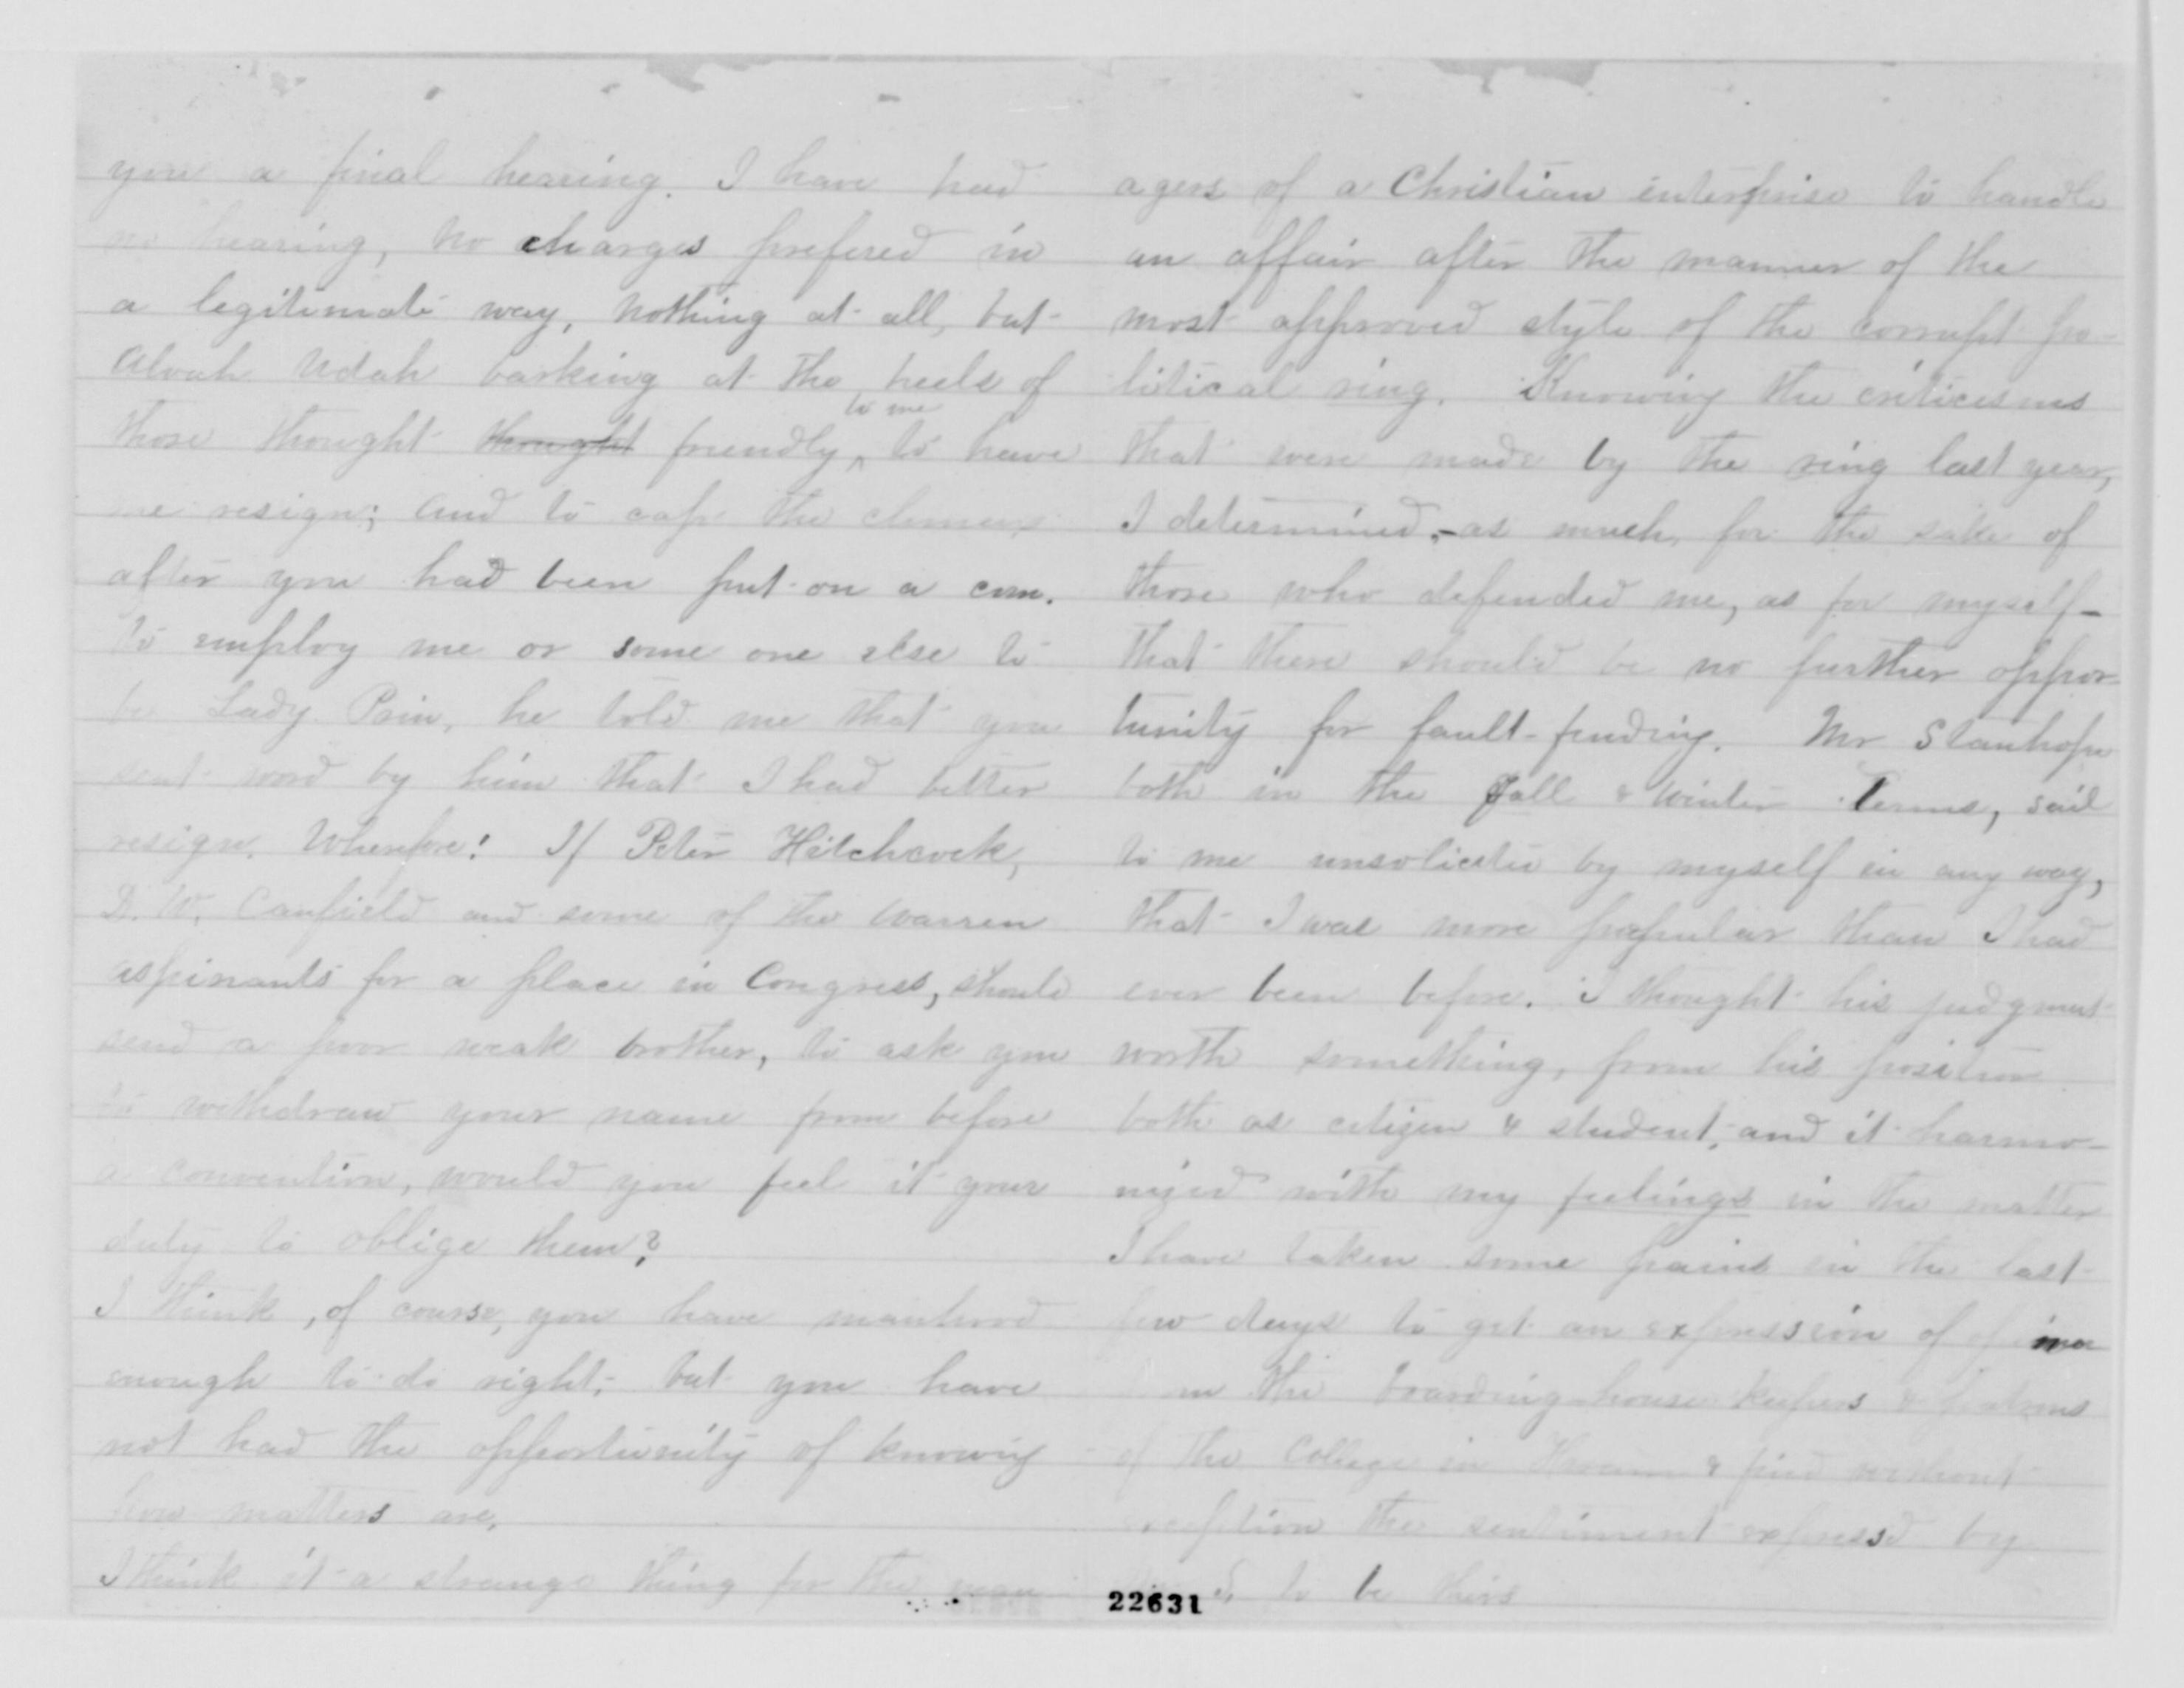 you a final hearing. I have had
no hearing, no charges prefered in
a legitimate way, nothing at all, but
Alvah Udah barking at the heels of
those thought thought friendly to me to have
me resign; and to cap the climax
after you had been put on a com.
to employ me or some one else to
be Lady Prin, he told me that you
sent word by him that I had better
resign. Wherefore! If Peter Hitchcock,
D. W. Canfield and some of the Warren
aspirants for a place in Congress, should
send a poor weak brother, to ask you
to withdraw your name from before
a convention, would you feel it your
duty to oblige them?
I think, of course, you have manhood
enough to do right; but you have
not had the opportunity of knowing
how matters are.
I think it a strange thing for the man
agers of a Christian interprise to handle
an affair after the manner of the
most approved style of the corrupt po-
litical ring. Knowing the criticesms
that were made by the ring last year,
I determined,-as much, for the sake of
those who defended me, as for myself-
that there should be no further oppor-
tunity for fault-finding. Mr Stanhope
both in the Fall & Winter Terms, said
to me unsolicited by myself in any way,
that I was more popular than I had
ever been before. I thought his judgment
worth something, from his position
both as citizen & student, and it harmo-
nized with my feelings in the matter
I have taken some pains in the last
few days to get an expression of
the boarding-house keepers & patrons
of the College in Hiram & find without
exception the sentiment expressd by
to be theirs
22631